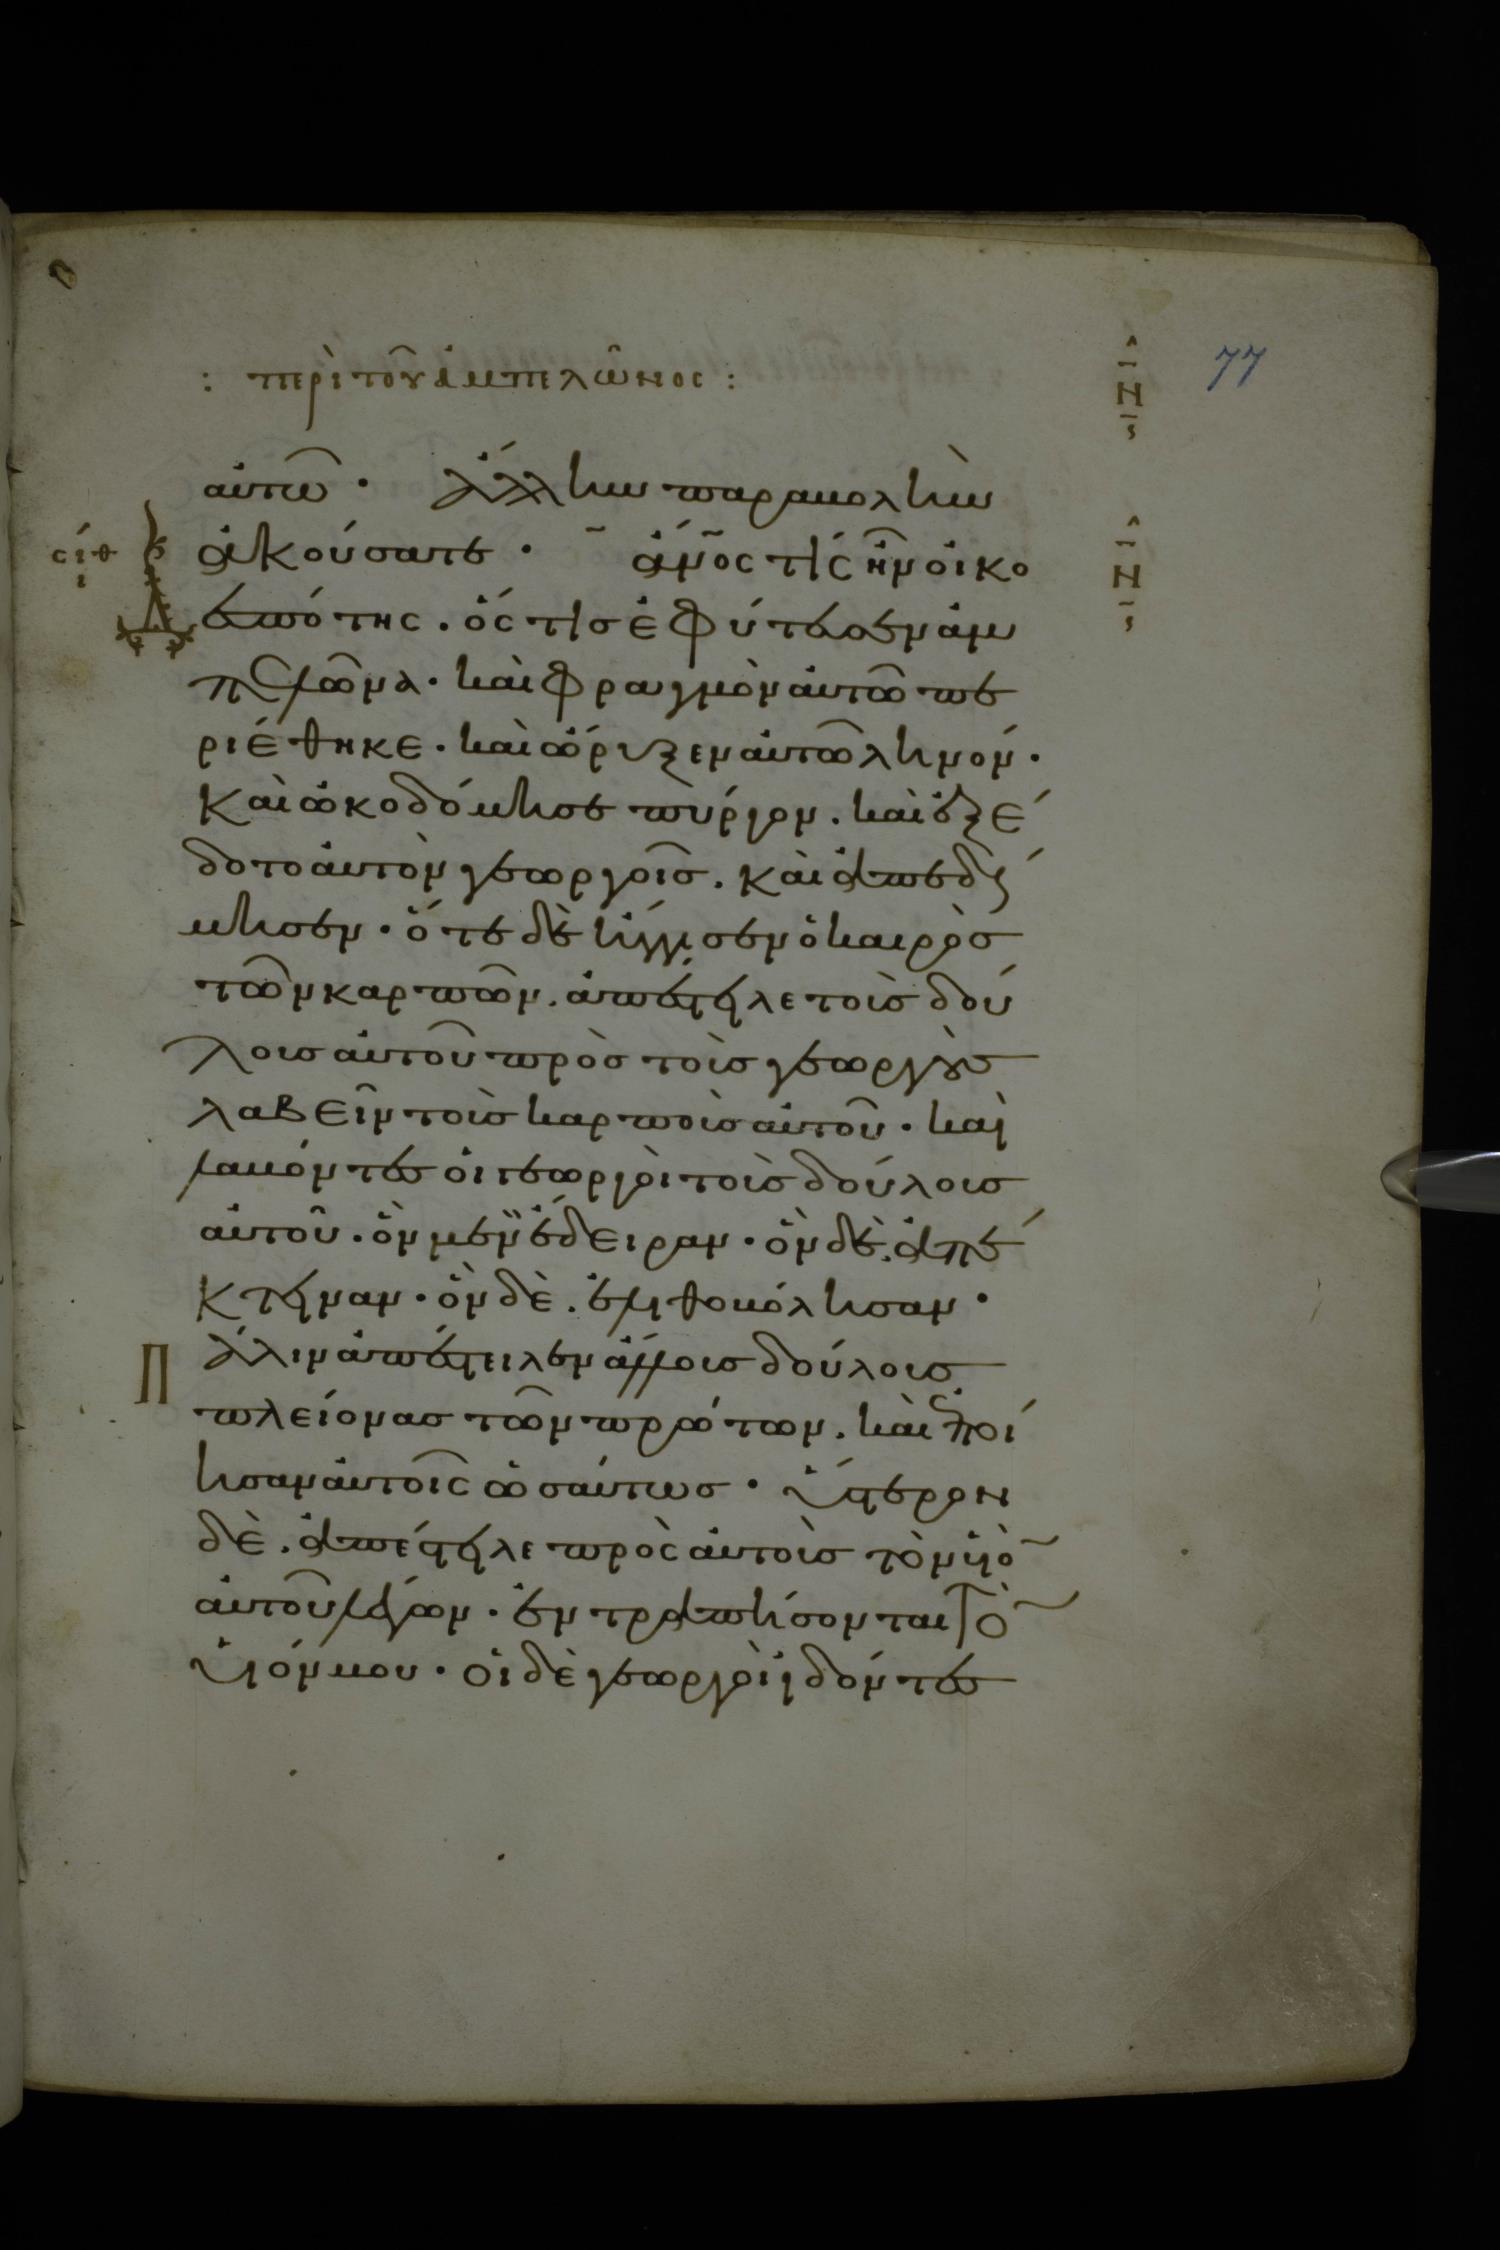 : περὶ τοῦ ἀμπελῶνος :
77
αὐτῶ · Ἄλλην παραβολὴν
ἀκούσατε · ἄν̅ο̅ς τίς ἦν οἰκο
σιθ
ι
Α
δεσπότης . ὅς τισ ἐφύτευσεν ἀμ
πελῶνα · καὶ φραγμὸν αὐτῶ πε
ριέθηκε · καὶ ὤρυξεν αὐτῶ ληνόν ·
καὶ ὠκοδόμησε πύργον . καὶ ἐξέ
δοτο αὐτὸν γεωργοῖσ . καὶ ἀπεδή
μησεν · ὅτε δὲ ἤγγισεν ὁ καιρὸσ
τῶν καρπῶν . ἀπέστειλε τοὺσ δού
λουσ αὐτοῦ πρὸσ τοὺσ γεωργοὺσ
λαβεῖν τοὺσ καρποὺσ αὐτοῦ · καὶ
λαβόντεσ οἱ γεωργοὶ τοὺσ δούλουσ
αὐτοῦ . ὃν μὲν ἔδειραν · ὃν δὲ . ἀπέ
κτειναν · ὃν δὲ . ἐλιθοβόλησαν ·
Π
άλιν ἀπέστειλεν ἄλλουσ δούλουσ
πλείονασ τῶν πρώτων . καὶ ἐποί
ησαν αὐτοῖς ὡσαύτωσ · ὕστερον
δὲ . ἀπέστειλε πρὸς αὐτοὺσ τὸν υἱὸ̅
αὐτοῦ λέγων · ἐντραπήσονται τὸ̅
υἱόν μου · οἱ δὲ γεωργοὶ ἰδόντεσ